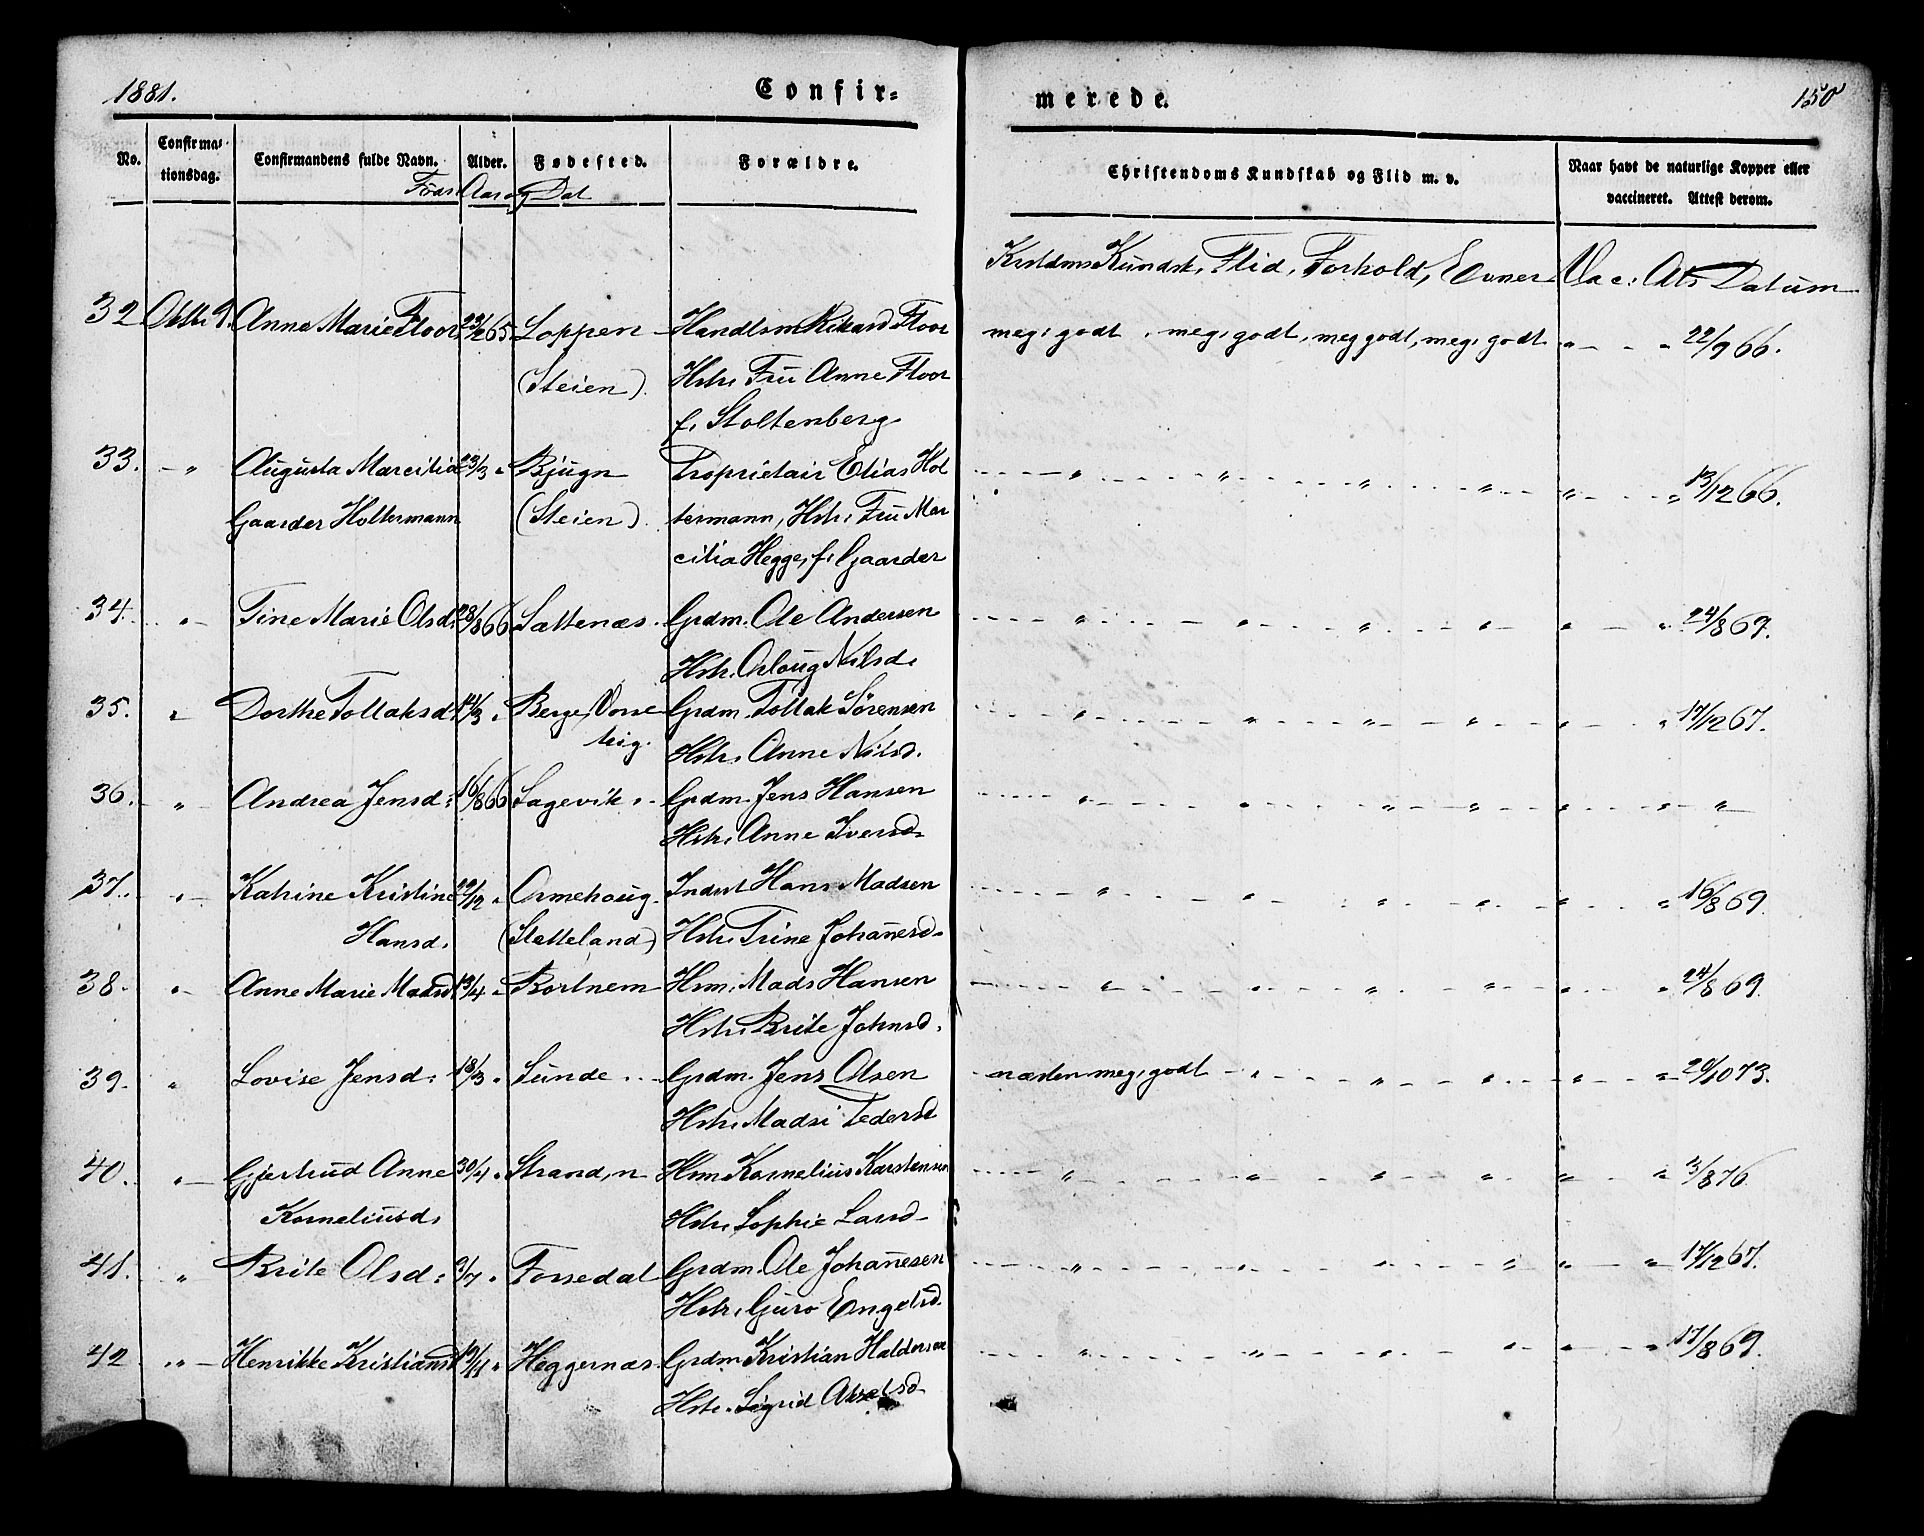 1881.
Confir=
merede.
150
No.
Confirma=
tionsdag.
Confirmandens fulde Navn.
Alder.
Fødested.
Forældre.
Christendoms Kundskab og Flid m. v.
Naar havt de naturlige Kopper eller
vaccineret. Attest derom.
Aar og Dat
Kristdms Kundsk, Flid, Forhold, Evner Vac: Atts Datum
32 Oktb. 9. Anna Marie Floor 22/2 65 Loppen Handlsm Rikard Floor meg. godt, meg. godt, meg godt, meg. godt " - - " 22/9 66.
(Steien) Hstr. Fru Anne Floor
f. Stoltenberg
33. - " Augusta Marcilie 23/3 " Bjugn Proprietair Elias Hol " " " " " " 13/12 66.
Gaarder Holtermann (Steien) termann, Hstr. Fru Mar
cilia Hegge, f. Gaarder
34. " - Tine Marie Olsd. 28/8 66 Sættenæs. Grdm. Ole Andersen " " " " " " 24/8 69.
Hstr. Oloug Nilsd.
35. " Dorthe Tollaksd. 14/3 " Berge, Vorse Grdm. Tollak Sørensen " " " " " " 17/12 67.
teig. Hstr. Anne Nilsd.
36. " Andrea Jensd: 16/8 66 Sagevik. Grdm. Jens Hansen " " " " " " "
Hstr. Anne Iversd.
37. " - Katrine Kristine 29/12 " Ormehoug. Inderst Hans Madsen " " " " " " 16/8 69.
Hansd. (Stetteland) Hstr. Trine Johannesd.
38. " - Anne Marie Madsd 13/4 " Bortnem Hsm. Mads Hansen " " " " " " 24/8 69.
Hstr. Brite Johnsd.
39. " Lovise Jensd: 18/3 " Sunde Grdm. Jens Olsen næsten meg. godt " " " " " 20/10 73.
Hstr. Madsi Pedersd
40. " - Gjertrud Anne 30/4 " Strand, n Hsm Kornelius Karstensen " " " " " " 3/8 76
Korneliusd. Hstr. Sophie Larsd
41. " Brite Olsd: 3/7 " Forsedal Grdm. Ole Johannesen " " " " " " 17/12 67.
Hstr. Guro Engelsd.
42 " - Henrikke Kristiansd 19/11 " Heggernæs Grdm Kristian Haldorsen " " " " " " 17/8 69.
Hstr. Sigrid Akselsd